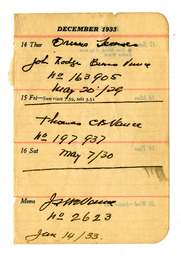 DECEMBER 1933
14 Thur Drivers Licenses
John Hodge Burns Vance
No 163905
May 20/29
15 Fri—SUN RISES 7.59, SETS 3.51
Thomas C B Vance
No 197937
16 Sat May 7/30
Memo J. S. McVance
No 2623
Jan 14/33.